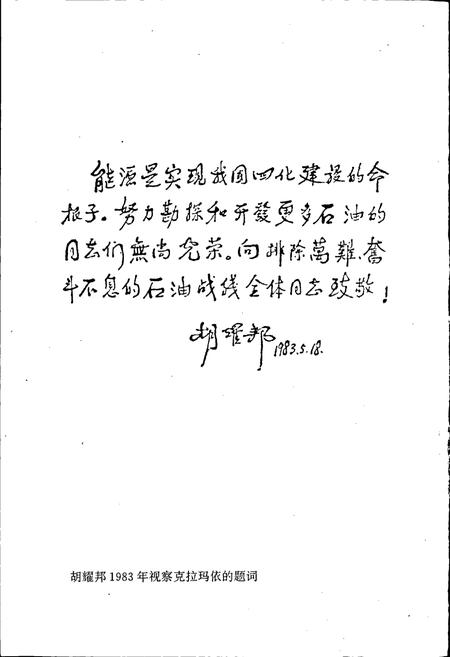 能源是实现我国四化建设的命
根子。努力勘探和开發更多石油的
同志们無尚光荣。向排除萬難、奮
斗不息的石油战线全体同志致敬！
胡耀邦 1983.5.18.
胡耀邦1983年视察克拉玛依的题词